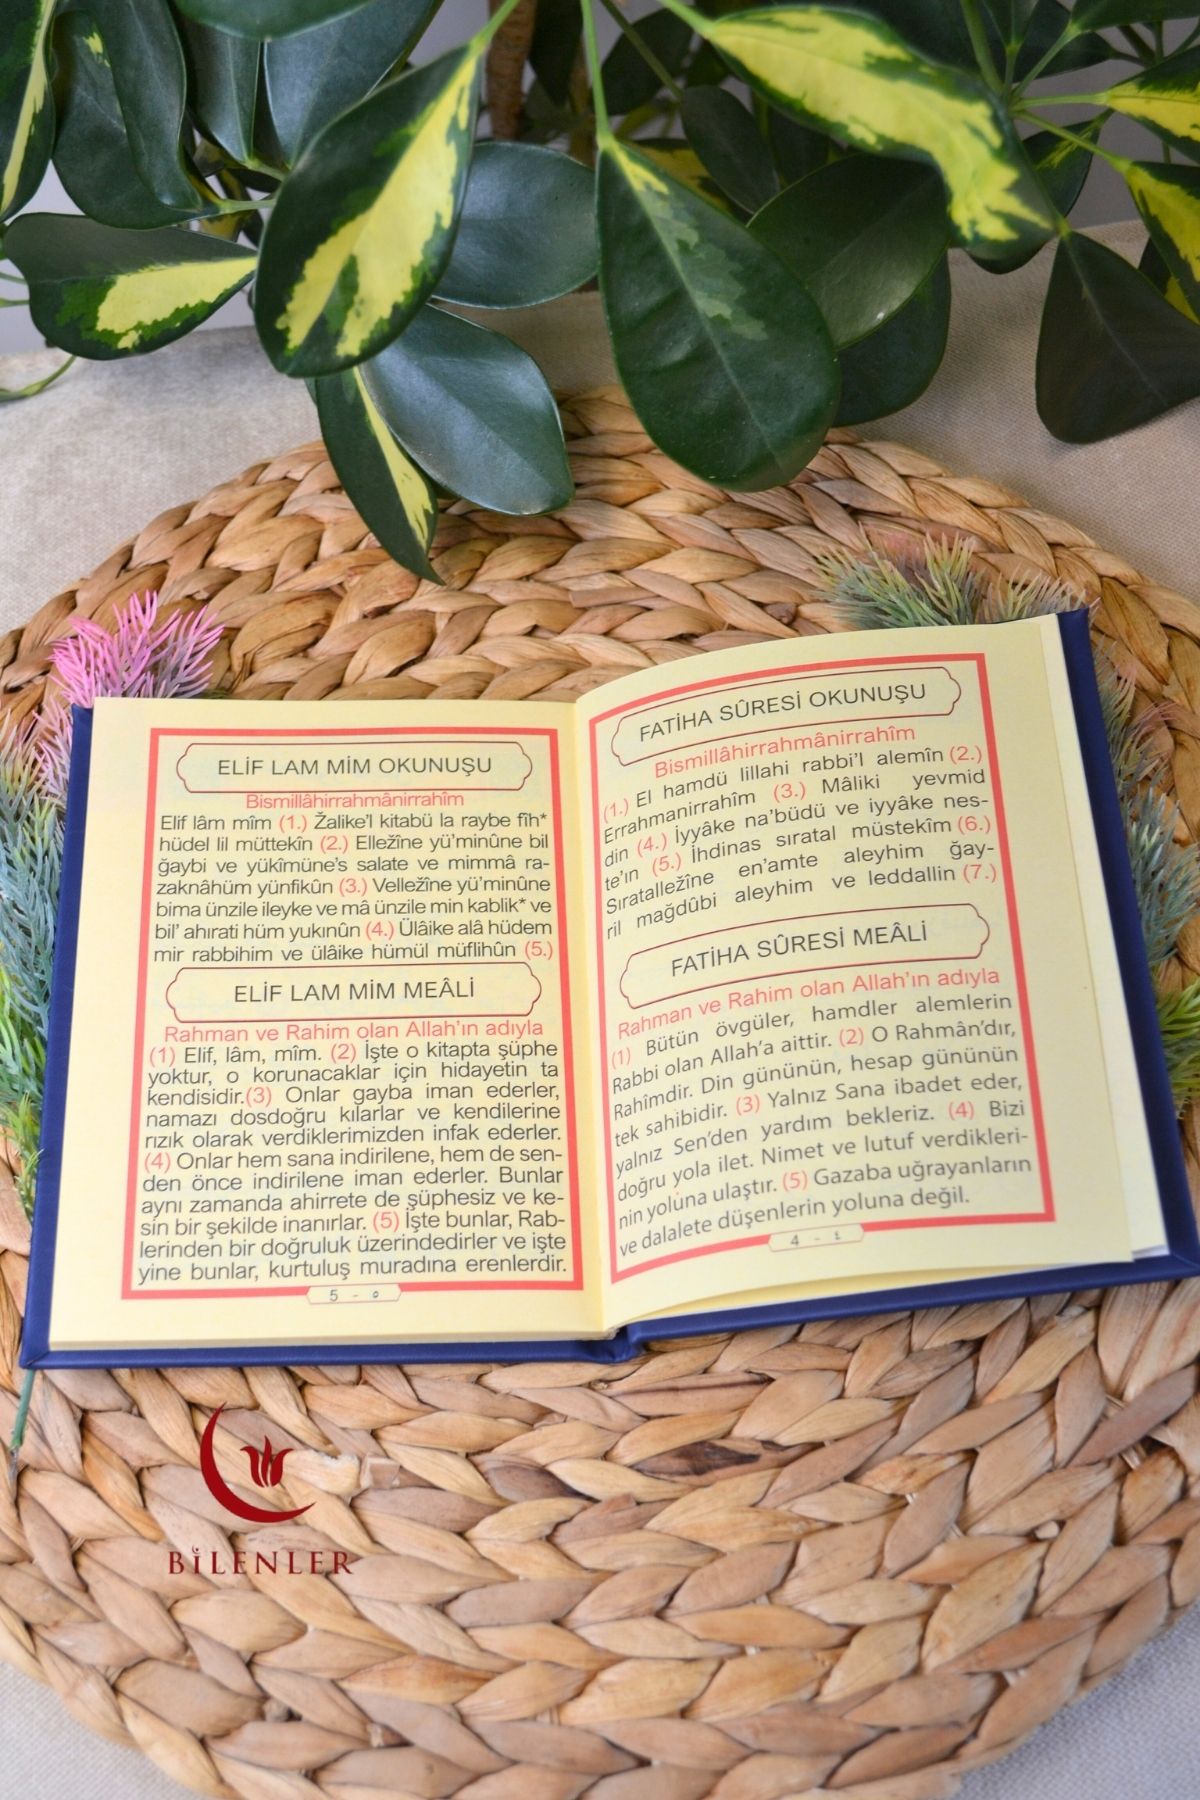 ELİF LAM MİM OKUNUŞU
Bismillâhirrahmânirrahîm
Elif lâm mîm (1.) Žalike'l kitabü la raybe fîh*
hüdel lil müttekîn (2.) Elležîne yü'minûne bil
ğaybi ve yükîmüne's salate ve mimmâ ra-
zaknâhüm yünfikûn (3.) Velležîne yü'minûne
bima ünzile ileyke ve mâ ünzile min kablik* ve
bil' ahırati hüm yukınûn (4.) Ülâike alâ hüdem
mir rabbihim ve ülâike hümül müflihûn (5.)
ELİF LAM MİM MEÂLİ
Rahman ve Rahim olan Allah'ın adıyla
(1) Elif, lâm, mîm. (2) İşte o kitapta şüphe
yoktur, o korunacaklar için hidayetin ta
kendisidir.(3) Onlar gayba iman ederler,
namazı dosdoğru kılarlar ve kendilerine
rızık olarak verdiklerimizden infak ederler.
(4) Onlar hem sana indirilene, hem de sen-
den önce indirilene iman ederler. Bunlar
aynı zamanda ahirrete de şüphesiz ve ke-
sin bir şekilde inanırlar. (5) İşte bunlar, Rab-
lerinden bir doğruluk üzerindedirler ve işte
yine bunlar, kurtuluş muradına erenlerdir.
5 - ٥
FATİHA SÛRESİ OKUNUŞU
Bismillâhirrahmânirrahîm
(1.) El hamdü lillahi rabbi'l alemîn (2.)
Errahmanirrahîm (3.) Mâliki yevmid
din (4.) İyyâke na'büdü ve iyyâke nes-
te'ın (5.) İhdinas sıratal müstekîm (6.)
Sıratalležîne en'amte aleyhim ğay-
ril mağdûbi aleyhim ve leddallin (7.)
FATİHA SÛRESİ MEÂLİ
Rahman ve Rahim olan Allah'ın adıyla
(1) Bütün övgüler, hamdler alemlerin
Rabbi olan Allah'a aittir. (2) O Rahmân'dır,
Rahîmdir. Din gününün, hesap gününün
tek sahibidir. (3) Yalnız Sana ibadet eder,
yalnız Sen'den yardım bekleriz. (4) Bizi
doğru yola ilet. Nimet ve lutuf verdikleri-
nin yoluna ulaştır. (5) Gazaba uğrayanların
ve dalalete düşenlerin yoluna değil.
4 - ٤
BİLENLER